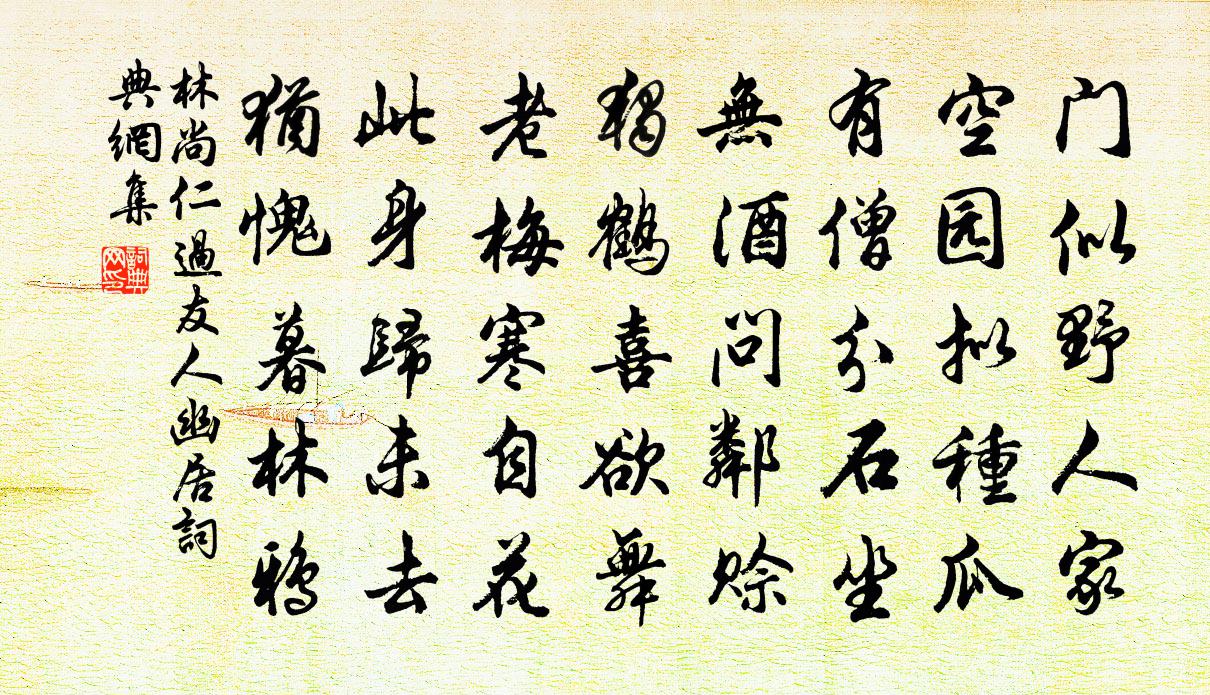 门似野人家
空园拟種瓜
有僧分石坐
無酒問鄰赊
獨鶴喜欲舞
老梅寒自花
此身歸未去
猶愧暮林鴉
林尚仁過友人幽居詞
典網集
詞典网印